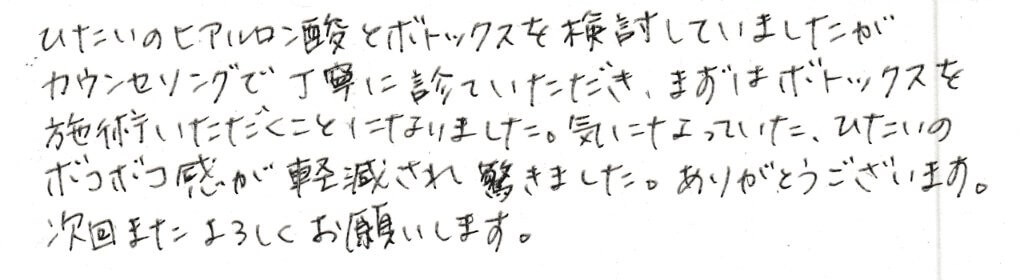 ひたいのヒアルロン酸とボトックスを検討していましたが
カウンセリングで丁寧に診ていただき、まずはボトックスを
施術いただくことになりました。気になっていた、ひたいの
ボコボコ感が軽減され驚きました。ありがとうございます。
次回またよろしくお願いします。